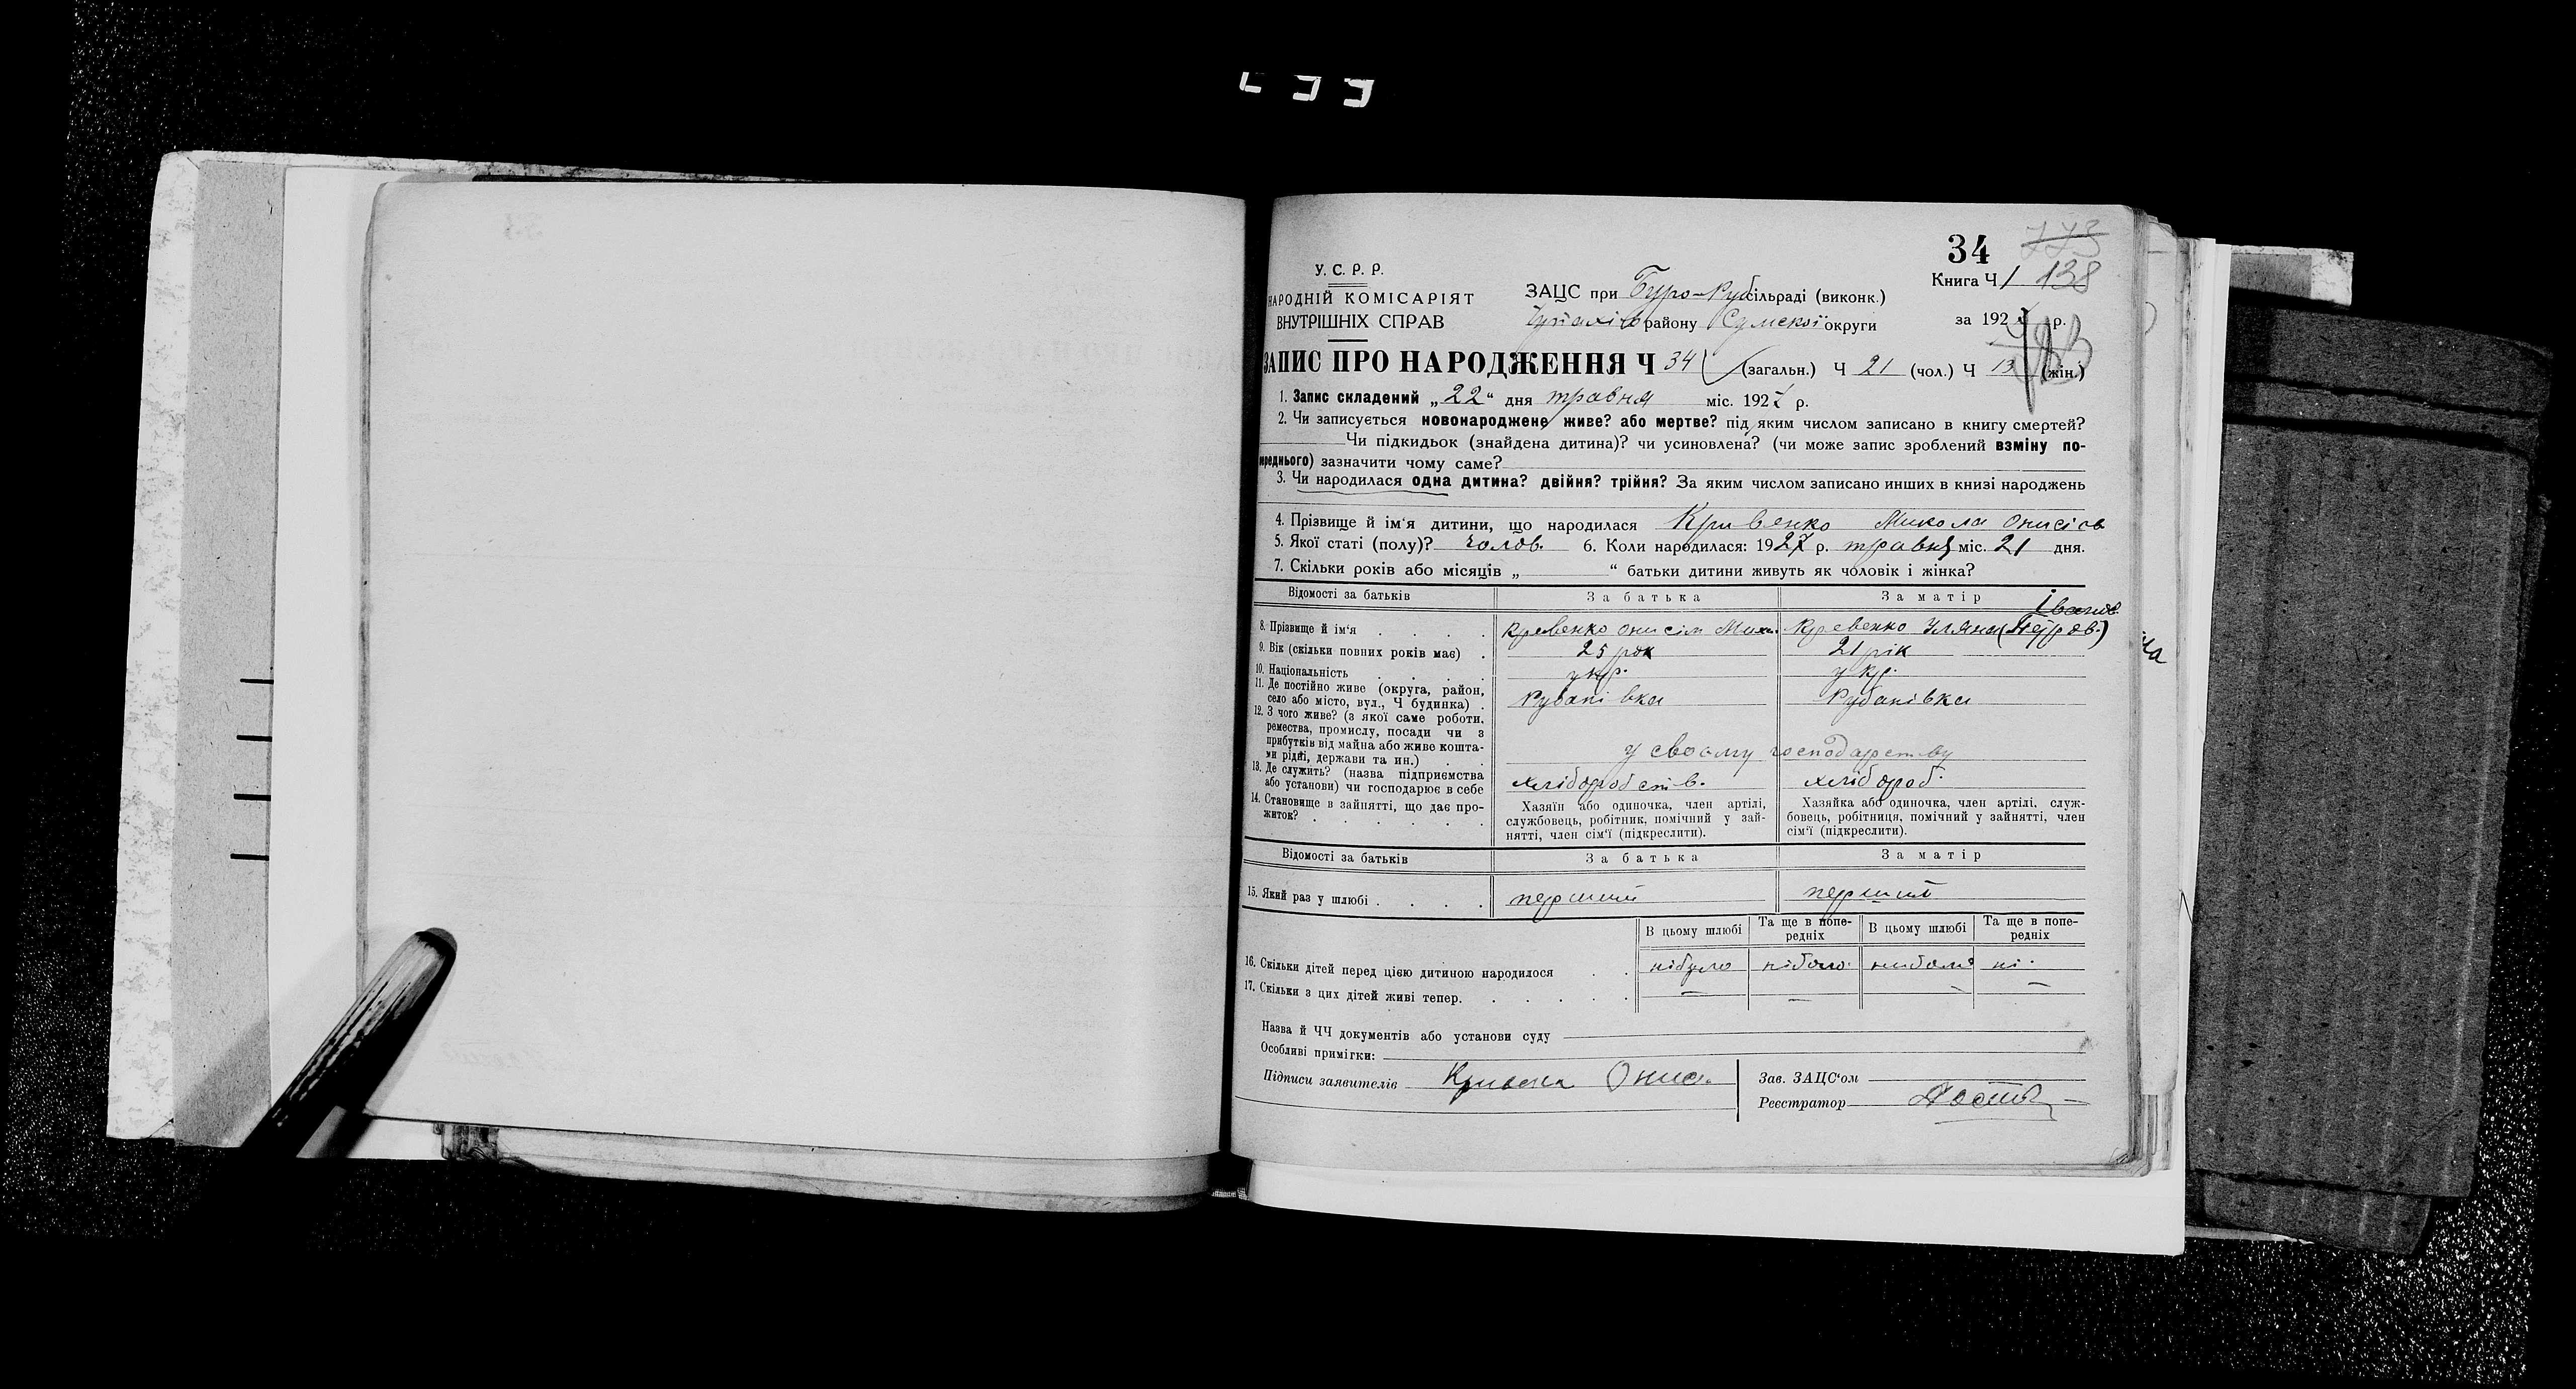 34
У. С. Р. Р.
НАРОДНІЙ КОМІСАРІЯТ
ВНУТРІШНІХ СПРАВ
ЗАЦС при Буро-Руб сільраді (виконк.)
району Сумської округи
Книга Ч 1 138
за 1927 р.
ЗАПИС ПРО НАРОДЖЕННЯ Ч 34 (загальн.) Ч 21 (чол.) Ч 13 (жін.)
1. Запис складений „22“ дня травня міс. 1927 р.
2. Чи записується новонароджене живе? або мертве? під яким числом записано в книгу смертей?
Чи підкидьок (знайдена дитина)? чи усиновлена? (чи може запис зроблений взміну по-
переднього) зазначити чому саме?
3. Чи народилася одна дитина? двійня? трійня? За яким числом записано инших в книзі народжень
4. Прізвище й ім‘я дитини, що народилася Кривенко Микола Онисіов
5. Якої статі (полу)? чолов. 6. Коли народилася: 1927 р. травня міс. 21 дня.
7. Скільки років або місяців „ “ батьки дитини живуть як чоловік і жінка?
Відомості за батьків За батька За матір
Іванов.
8. Прізвище й ім‘я Кревенко Онисім Миха. Кревенко Уляна
9. Вік (скільки повних років має) 25 рок 21 рік
10. Національність укр. укр.
11. Де постійно живе (округа, район,
село або місто, вул., Ч будинка) Рубанівка Рубанівка
12. З чого живе? (з якої саме роботи,
ремества, промислу, посади чи з
прибутків від майна або живе кошта-
ми рідні, держави та ин.) у своему господарству
13. Де служить? (назва підприємства
або установи) чи господарює в себе хліборобств. хлібороб.
14. Становище в зайнятті, що дає про-
житок?
Хазяїн або одиночка, член артілі,
службовець, робітник, помічний у зай-
нятті, член сім‘ї (підкреслити).
Хазяйка або одиночка, член артілі, служ-
бовець, робітниця, помічний у зайнятті, член
сім‘ї (підкреслити).
Відомості за батьків За батька За матір
15. Який раз у шлюбі перший перший
В цьому шлюбі Та ще в попе-
редніх В цьому шлюбі Та ще в попе-
редніх
16. Скільки дітей перед цією дитиною народилося нібуло ні.
17. Скільки з цих дітей живі тепер. — — — —
Назва й ЧЧ документів або установи суду
Особливі примітки:
Підписи заявителів Кривенк Онис.
Зав. ЗАЦС‘ом
Реєстратор